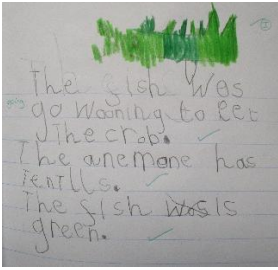 The fish was
go wooning to eet
The crob.
The anemone has
Tentlls.
The fish was is
green.